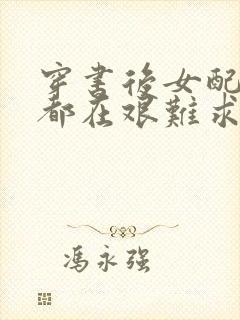 穿書後女配
都在艰難求
馮永强